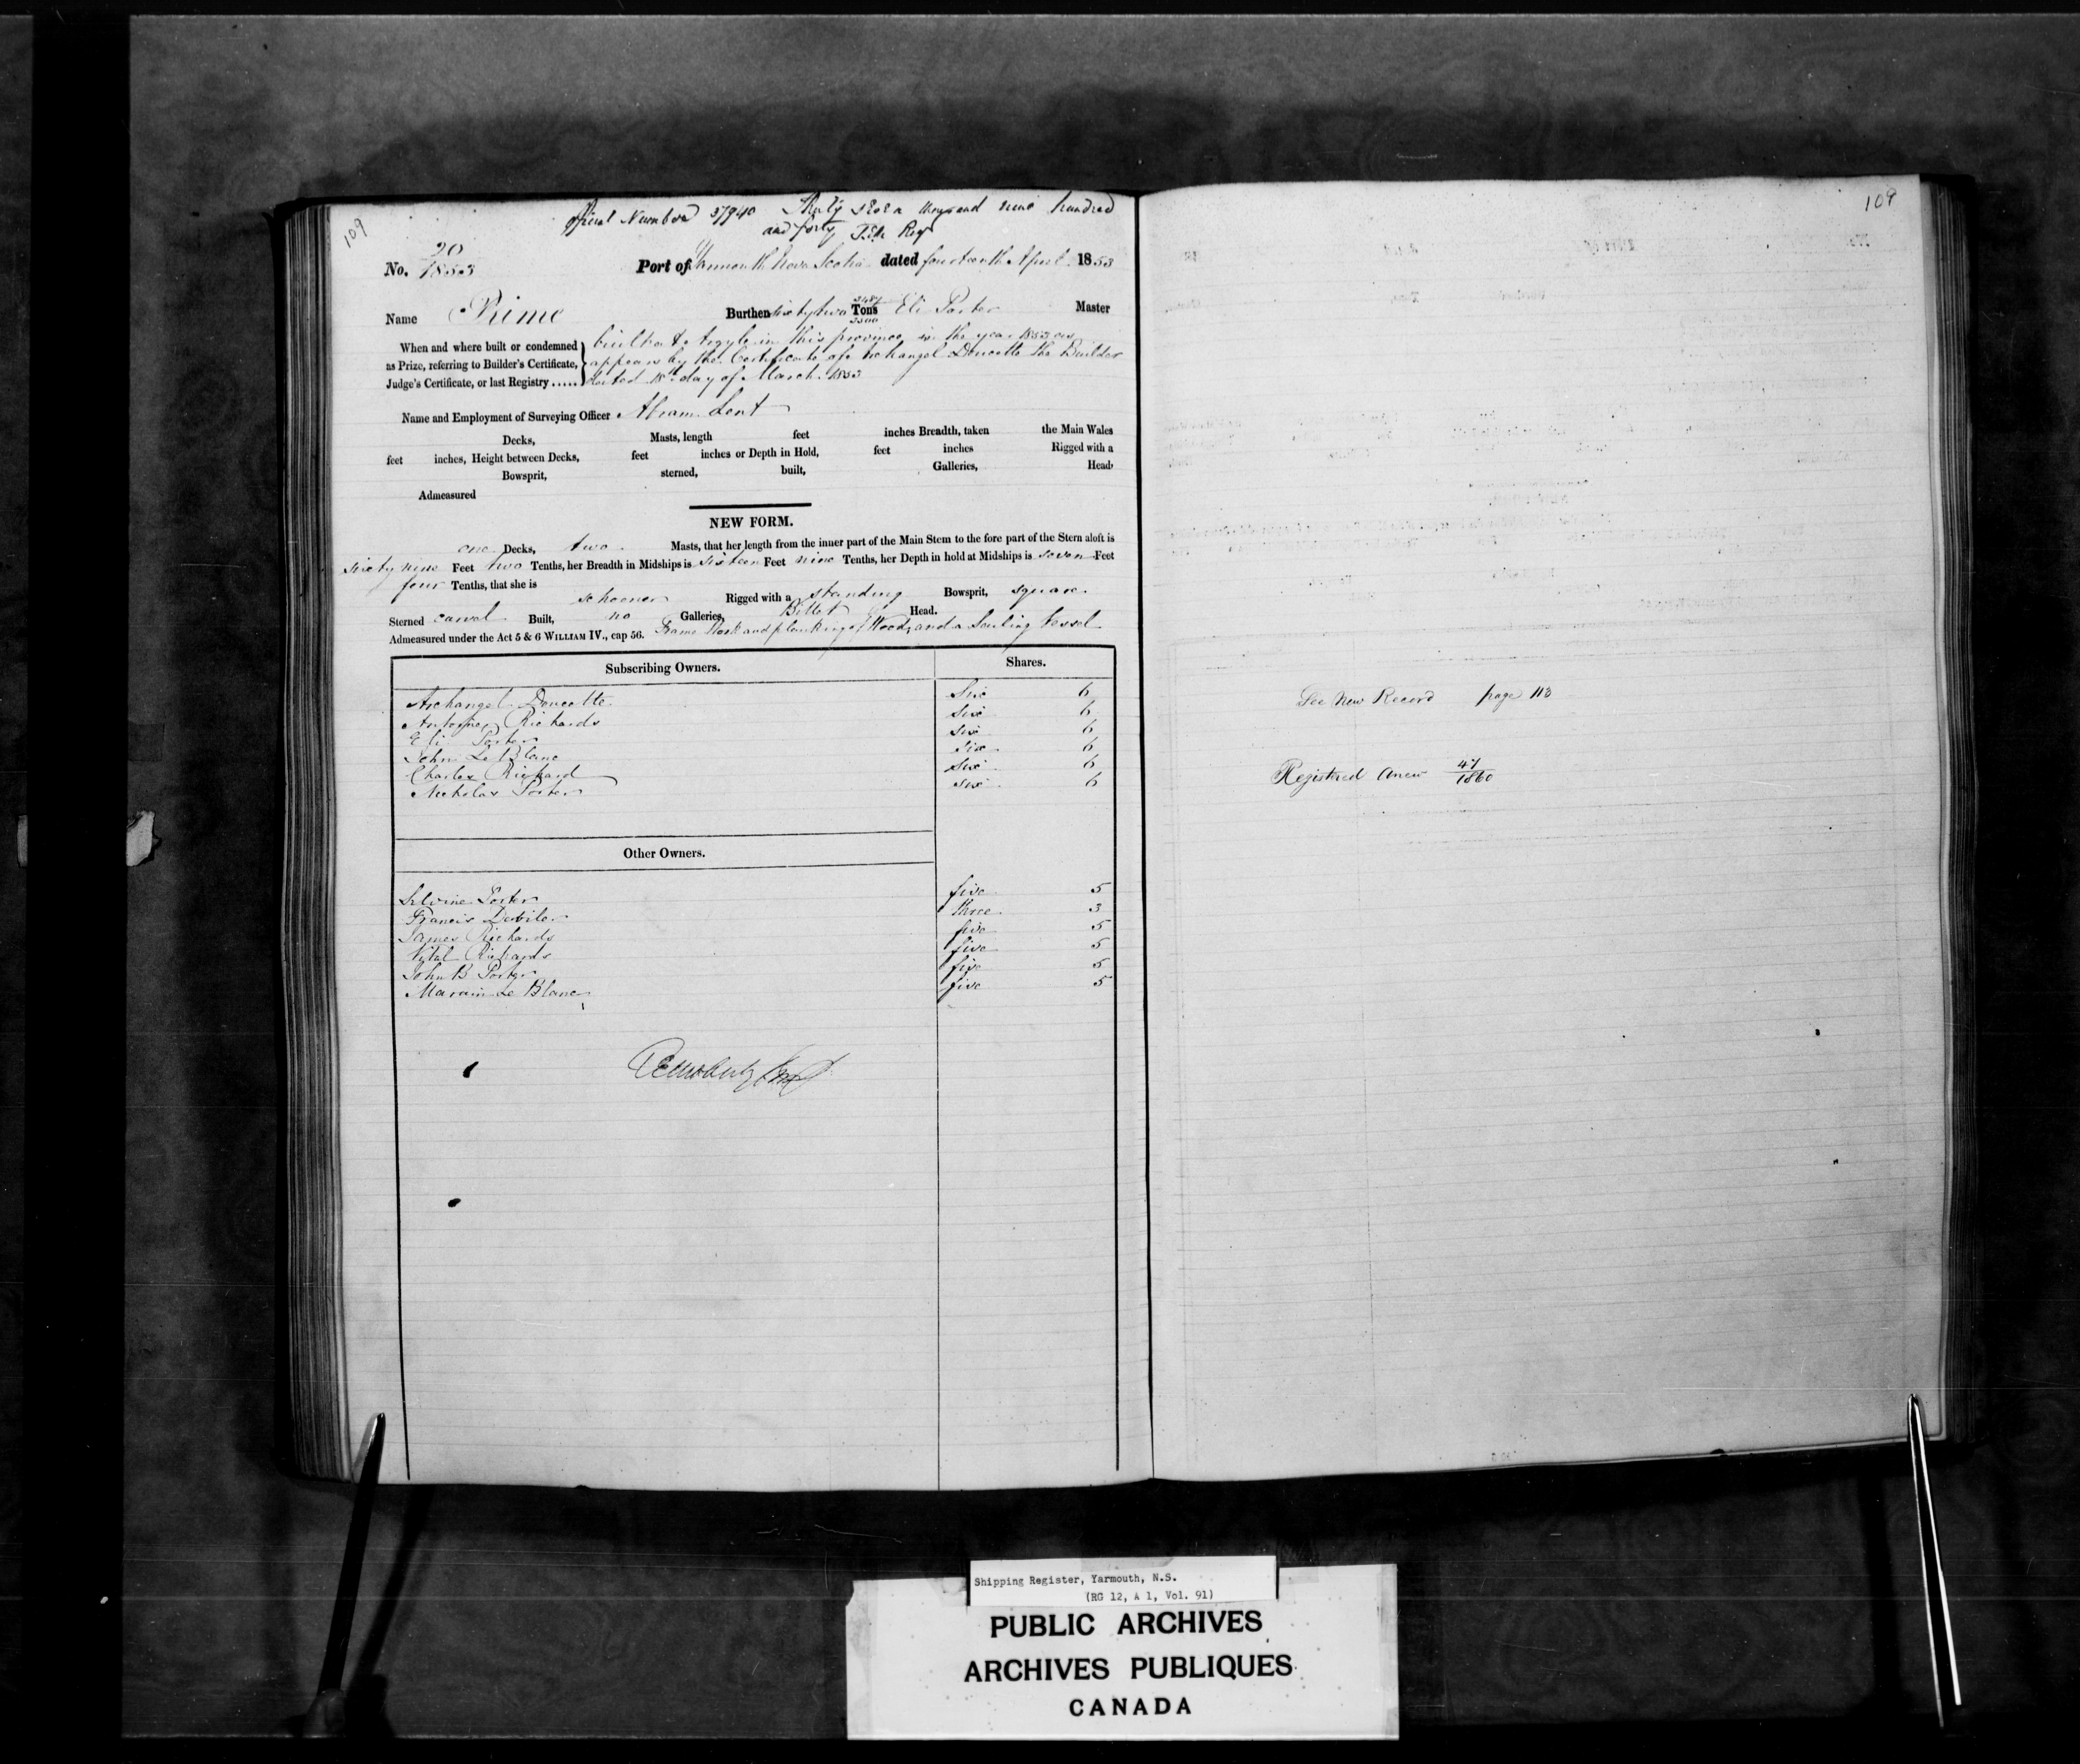 109
Official Number 37940 Thirty seven thousand nine hundred
and forty
No. 20/1853 Port of Yarmouth Nova Scotia dated fourteenth April 1853
Name Prime Burthen sixty two 2487/3500 Tons Eli Porter Master
When and where built or condemned
as Prize, referring to Builder's Certificate,
Judge's Certificate, or last Registry .....
built at Argyle in this province in the year 1853 as
appears by the Certificate of Archangel Doucette the Builder
dated 18th day of March 1853
Name and Employment of Surveying Officer Abram Lent
Decks, Masts, length feet inches Breadth, taken the Main Wales
feet inches, Height between Decks, feet inches or Depth in Hold, feet inches Rigged with a
Bowsprit, sterned, built, Galleries, Head,
Admeasured
NEW FORM.
one Decks, two Masts, that her length from the inner part of the Main Stem to the fore part of the Stern aloft is
sixty nine Feet two Tenths, her Breadth in Midships is sixteen Feet nine Tenths, her Depth in hold at Midships is seven Feet
four Tenths, that she is schooner Rigged with a standing Bowsprit, square
Sterned carvel Built, no Galleries, Billet Head.
Admeasured under the Act 5 & 6 WILLIAM IV., cap 56. Frame Work and planking of Wood, and a Sailing Vessel
Subscribing Owners. Shares.
Archangel Doucette Six 6
Richards six 6
Eli Porter six 6
John Le Blanc six 6
Charles Richard six 6
Nicholas Porter six 6
Other Owners.
Silvine Porter five 5
Francis three 3
James Richards five 5
Vital Richards five 5
John B Porter five 5
Le Blanc five 5
109
See New Record page 113
Registered Anew 47/1860
Shipping Register, Yarmouth, N.S.
(RG 12, A 1, Vol. 91)
PUBLIC ARCHIVES
ARCHIVES PUBLIQUES
CANADA